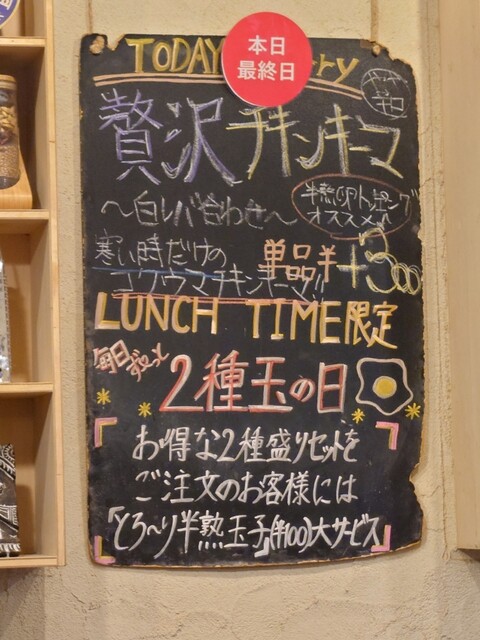 本日
最終日
TODAY rry
やや
辛口
贅沢チキンキーマ
〜白レバ合わせ〜
半熟卵トッピング
オススメ!!
寒い時だけの
コクウマチキンキーマ!!
単品¥+300
LUNCH TIME限定
毎日ずーっと
2種玉の日
お得な2種盛りセットを
ご注文のお客様には
「とろ〜り半熟玉子」(¥100)大サービス